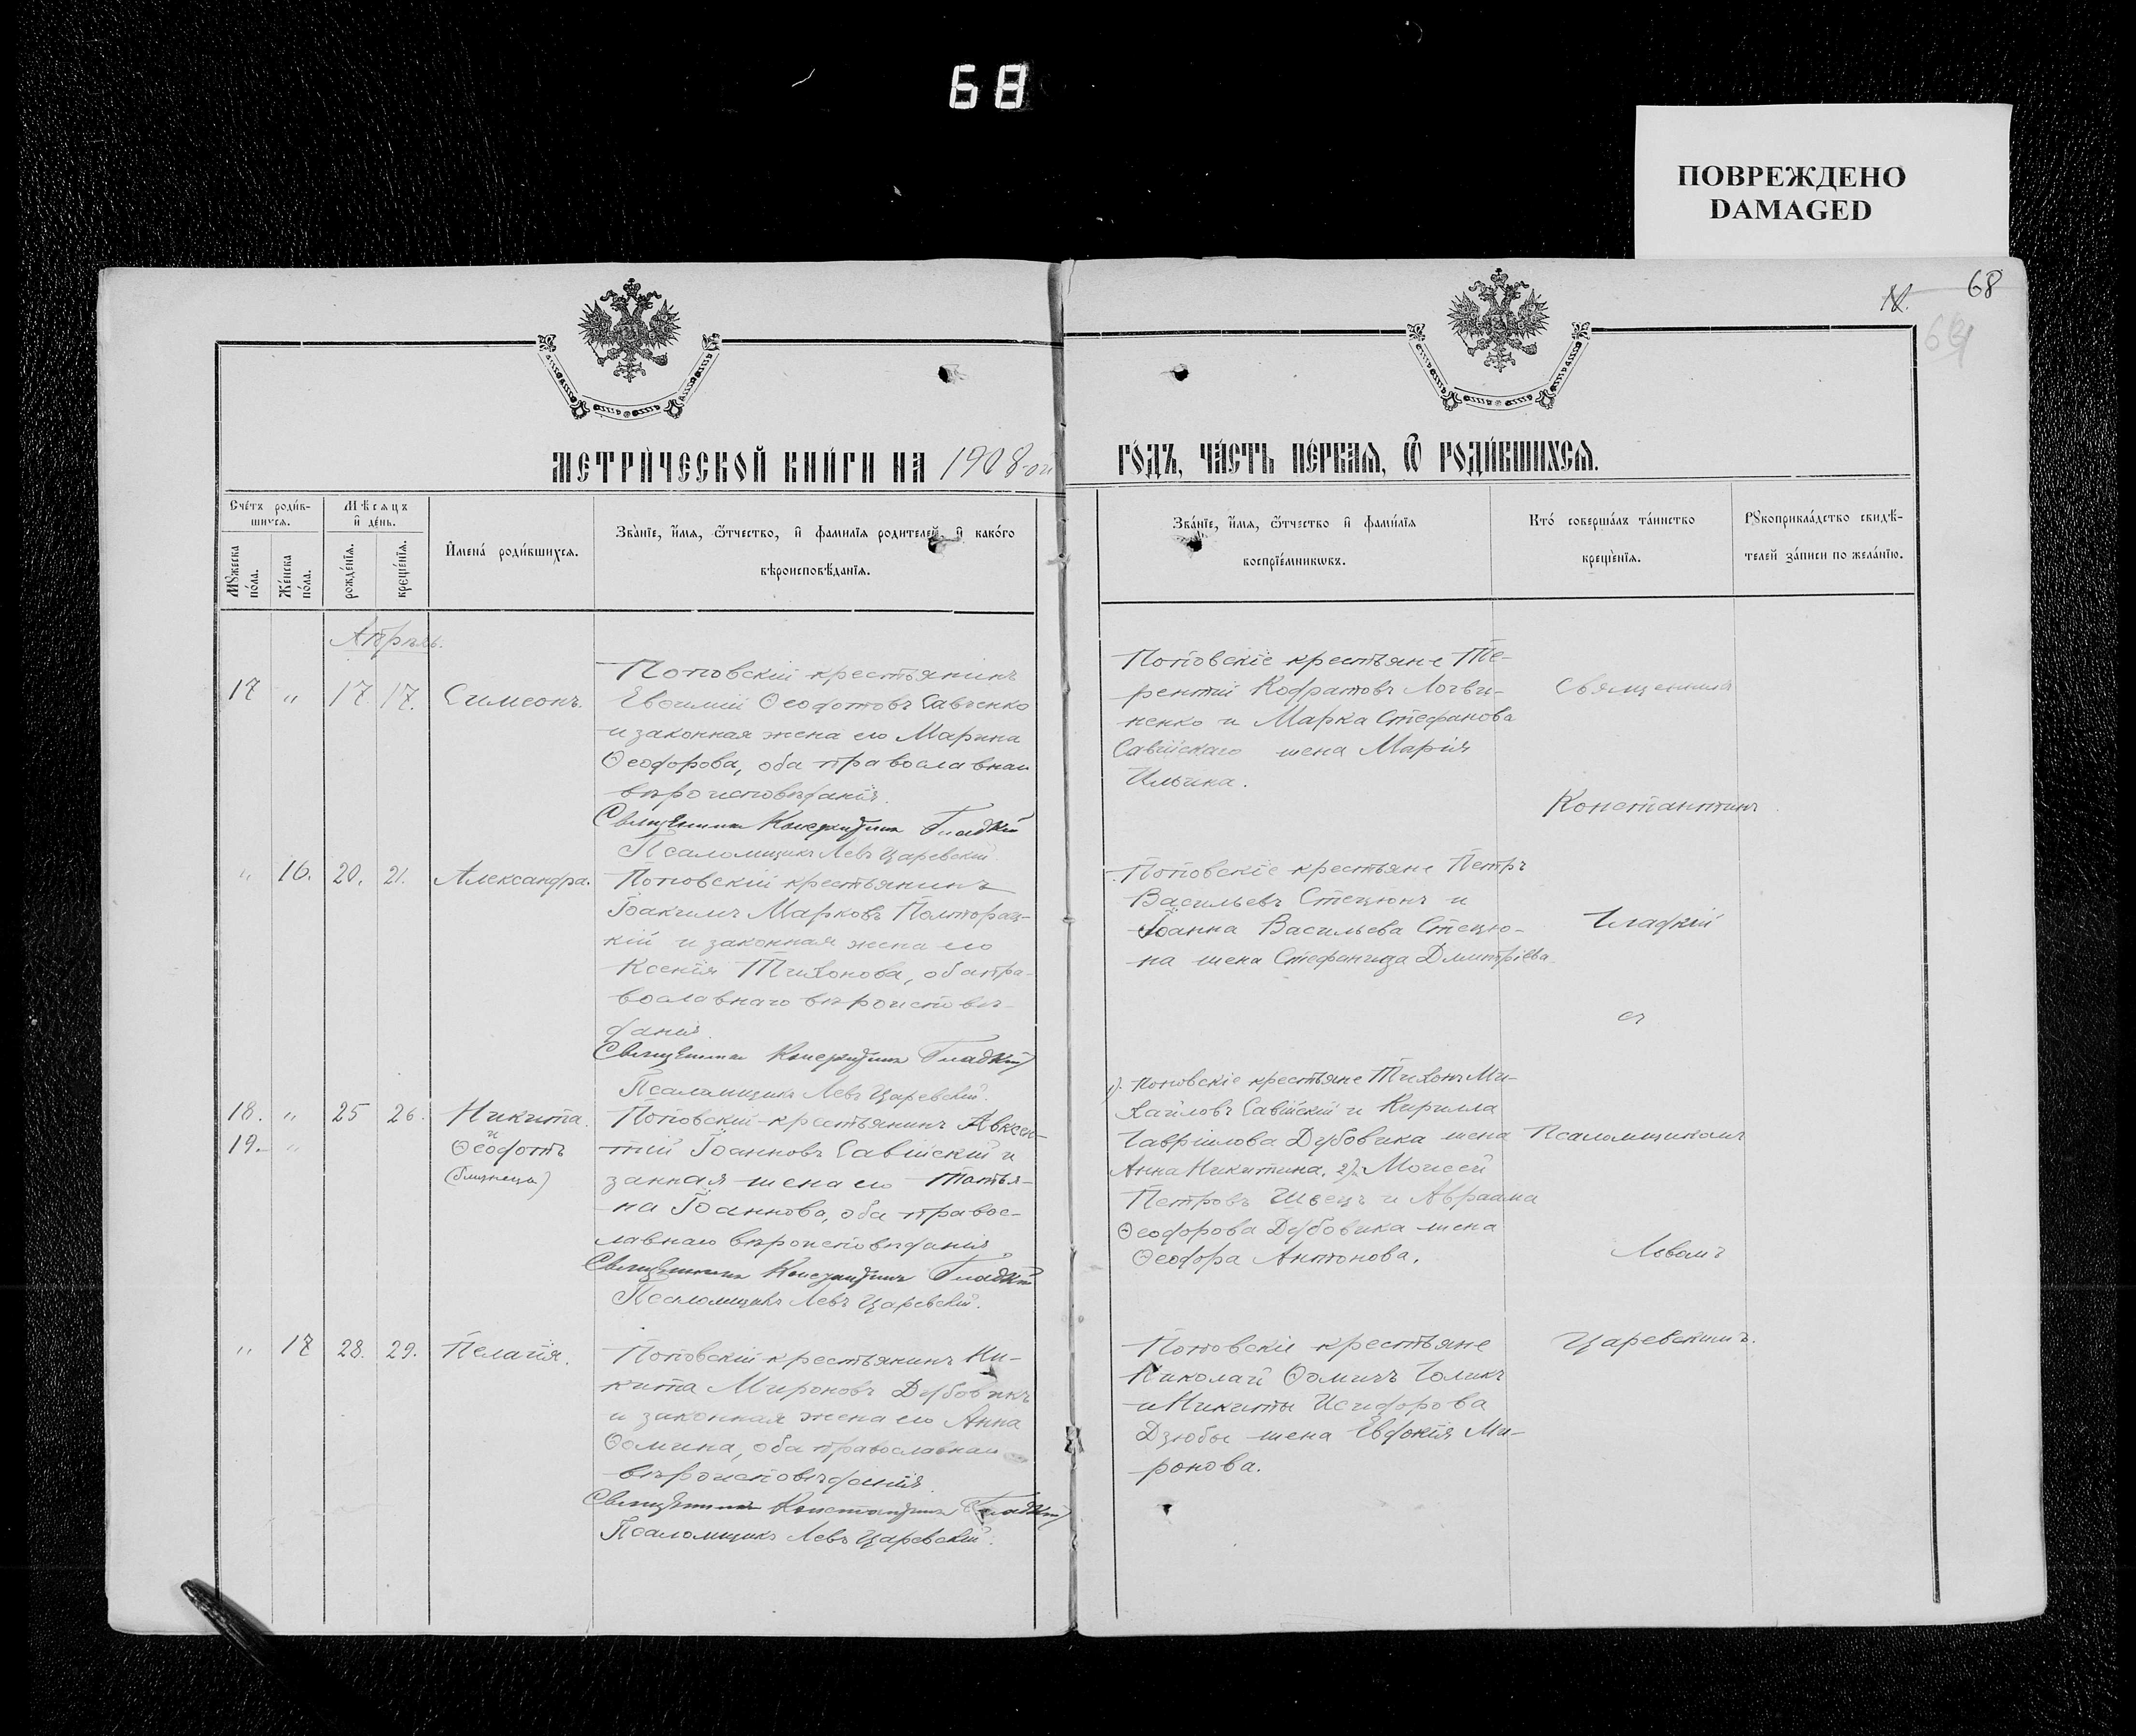 68
ПОВРЕЖДЕНО
DAMAGED
68
МЕТРИ́ЧЕСКОЙ КНИ́ГИ НА 1908 ой
ГО́ДЪ, ЧА́СТЬ ПЕ́РВАѦ, Ѿ РОДИ́ВШИХСѦ.
Сче́тъ роди́в-
шихся.
Мѣ́сяцъ
и де́нь.
Мꙋ́жеска
по́ла.
Же́нска
по́ла.
рожде́нїя.
креще́нїя.
Имена́ роди́вшихся.
Зва́нїе, и́мя, ѻ́тчество, и фами́лїя родителей, и како́го
вѣроисповѣ́данїя.
Зва́нїе, и́мя, ѻ́тчество и фами́лїя
воспрїе́мникѡвъ.
Кто́ соверша́лъ та́инство
креще́нїя.
Рꙋкоприкла́дство свидѣ́-
телей за́писи по жела́нїю.
Апрѣль.
17 " 17. 17. Симеонъ.
Поповскій крестьянинъ
Евѳимій Ѳеодотовъ Савченко
и законная жена его Марина
Ѳеодорова, оба православнаго
вѣроисповѣданія.
Священникъ Константинъ Гладкій
Псаломщикъ Левъ Царевскій.
Поповскіе крестьяне Те-
рентій Кодратовъ Логви-
ненко и Марка Стефанова
Савійскаго жена Марія
Ильина.
Священникъ
Константинъ
" 16. 20. 21. Александра.
Поповскій крестьянинъ
Іоакимъ Марковъ Полторац-
кій и законная жена его
Ксенія Тихонова, оба пра-
вославнаго вѣроисповѣ-
данія.
Священникъ Константинъ Гладкій
Псаломщикъ Левъ Царевскій.
Поповскіе крестьяне Петръ
Васильевъ Стецюнъ и
Іоанна Васильева Стецю-
на жена Стефанида Дмитріева.
Гладкій
съ
18. " 25 26. Никита
19. " и
Ѳеодотъ
(близнецы)
Поповскій крестьянинъ Авксен-
тій Іоанновъ Савійскій и
законная жена его Татья-
на Іоаннова, оба правос-
лавнаго вѣроисповѣданія.
Священникъ Константинъ Гладкій
Псаломщикъ Левъ Царевскій.
1). Поповскіе крестьяне Тихонъ Ми-
хайловъ Савійскій и Кирилла
Гавріилова Дубовика жена
Анна Никитина. 2). Моисей
Петровъ Швецъ и Авраама
Ѳеодорова Дубовика жена
Ѳеодора Антонова.
Псаломщикомъ
Львомъ
Царевскимъ.
" 17 28. 29. Пелагія.
Поповскій крестьянинъ Ни-
кита Мироновъ Дубовикъ
и законная жена его Анна
Ѳомина, оба православнаго
вѣроисповѣданія.
Священникъ Константинъ Гладкій
Псаломщикъ Левъ Царевскій.
Поповскіе крестьяне
Николай Ѳомичъ Голикъ
и Никиты Исидорова
Дзюбы жена Евдокія Ми-
ронова.